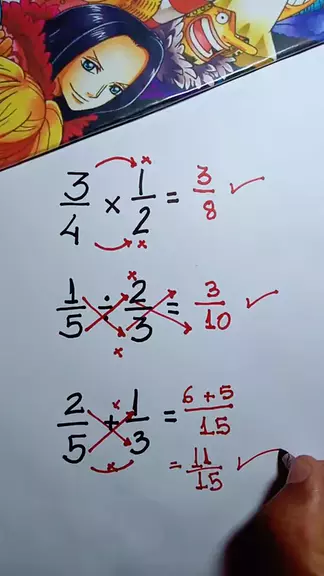 3/4 × 1/2 = 3/8 ✓
1/5 ÷ 2/3 = 3/10 ✓
2/5 + 1/3 = 6 + 5/15
= 11/15 ✓